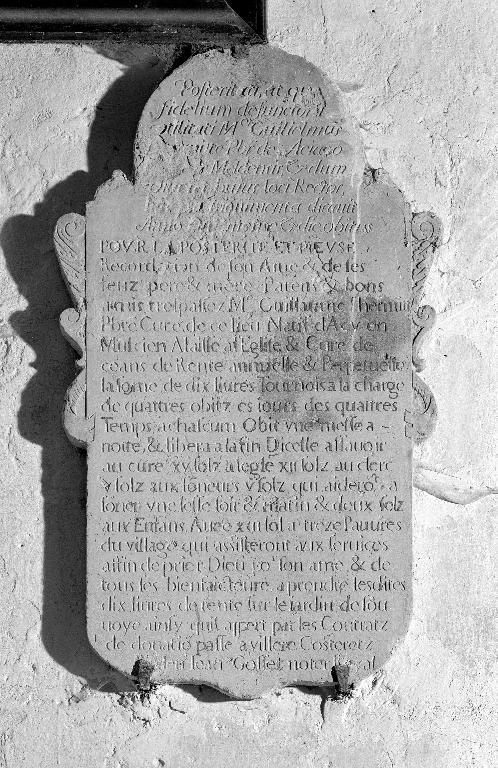 Posteritati, atque
fidelium defunctorum
utilitati Mᵉʳ Guillelmus
Pbr de Aciaco
Meldemsi
huius loci Rector,
dicauit
Anno
POVR LA POSTERITE ET PIEVSE
Recordation de son Ame & de ses
feuz pere & mere Parens & bons
amis trespassez Mᵉ Guillaume Lhermite
Pbre Curé de ce lieu Natif d'Acy en
Mulcien Alaisse a l'Eglise & Curé de
ceans de Rente annuelle & Perpetuelle
la some de dix liures Tournois a la charge
de quattres obitz es iours des quattres
Temps, a chascum Obit vne messe a
notte, & libera a la fin Dicelle assauoir
au curé xv solz a leglise xii solz au clerc
v solz aux soneurs v solz qui aiderōt a
soner vne lesse soir & matin & deux solz
aux Enfans. Auec xiii sol a treze Pauures
du village qui assisteront aux seruices
affin de prier Dieu poʳ son ame & de
tous les bienfaicteurs a prendre lesdites
dix liures de rente sur le iardin de sou
uoye ainsy quil appert par les Contratz
de donatiō passé a villers Costeretz
Iean Gosset notere Royal